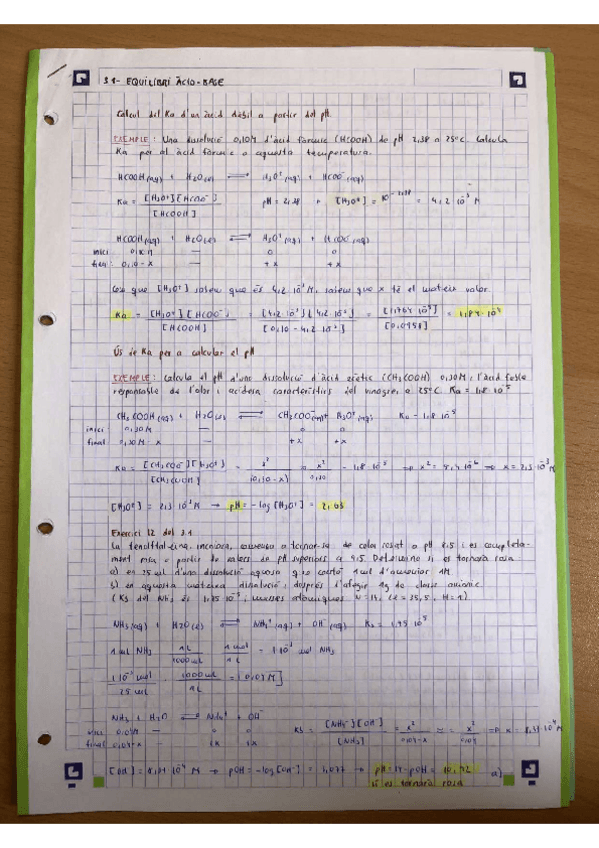 3.1- EQUILIBRI ÀCID-BASE
Càlcul del Ka d'un àcid dèbil a partir del pH
EXEMPLE: Una dissolució 0,10M d'àcid fòrmic (HCOOH) té pH 2,38 a 25ºC. Calcula
Ka per al àcid fòrmic a aquesta temperatura.
HCOOH(aq) + H2O(l) ⇌ H3O+(aq) + HCOO-(aq)
Ka = [H3O+][HCOO-] / [HCOOH] pH = 2,38 → [H3O+] = 10^-2,38 = 4,2·10^-3 M
HCOOH(aq) + H2O(l) ⇌ H3O+(aq) + HCOO-(aq)
inici 0,10M — 0 0
final: 0,10-x — +x +x
Com que [H3O+] sabem que és 4,2·10^-3 M, sabem que x té el mateix valor
Ka = [H3O+][HCOO-] / [HCOOH] = [4,2·10^-3][4,2·10^-3] / [0,10-4,2·10^-3] = [1,764·10^-5] / [0,0958] = 1,84·10^-4
Ús de Ka per a calcular el pH
EXEMPLE: Calcula el pH d'una dissolució d'àcid acètic (CH3COOH) 0,30M, l'àcid feble
responsable de l'olor i acidesa característics del vinagre, a 25ºC. Ka = 1,8·10^-5
CH3COOH(aq) + H2O(l) ⇌ CH3COO-(aq) + H3O+(aq) Ka = 1,8·10^-5
inici 0,30M — 0 0
final 0,30M-x — +x +x
Ka = [CH3COO-][H3O+] / [CH3COOH] = x² / (0,30-x) = x² / 0,30 = 1,8·10^-5 ⇒ x² = 5,4·10^-6 ⇒ x = 2,3·10^-3 M
[H3O+] = 2,3·10^-3 M → pH = -log[H3O+] = 2,63
Exercici 12 del 3.1
La fenolftaleïna, incolora, comença a tornar-se de color rosat a pH 8.5 i es completa-
ment rosa a partir de valors de pH superiors a 9.5. Determina si es tornarà rosa
a) en 25 ml d'una dissolució aquosa que conté 1 ml d'amoníac 1M
b) en aquesta mateixa dissolució, després d'afegir 1g de clorur amònic
(Kb del NH3 és 1,75·10^-5, masses atòmiques N=14, Cl=35,5, H=1)
NH3(aq) + H2O(l) ⇌ NH4+(aq) + OH-(aq) Kb = 1,75·10^-5
1 ml NH3 · 1L / 1000ml · 1 mol / 1L = 1·10^-3 mol NH3
1·10^-3 mol / 25 ml · 1000ml / 1L = [0,04M]
NH3 + H2O ⇌ NH4+ + OH-
inici 0,04M — 0 0
final 0,04-x — +x +x
Kb = [NH4+][OH-] / [NH3] = x² / 0,04-x ≈ x² / 0,04 ⇒ x = 8,37·10^-4 M
[OH-] = 8,37·10^-4 M → pOH = -log[OH-] = 3,077 → pH = 14-pOH = 10,92 a)
sí es tornarà rosa